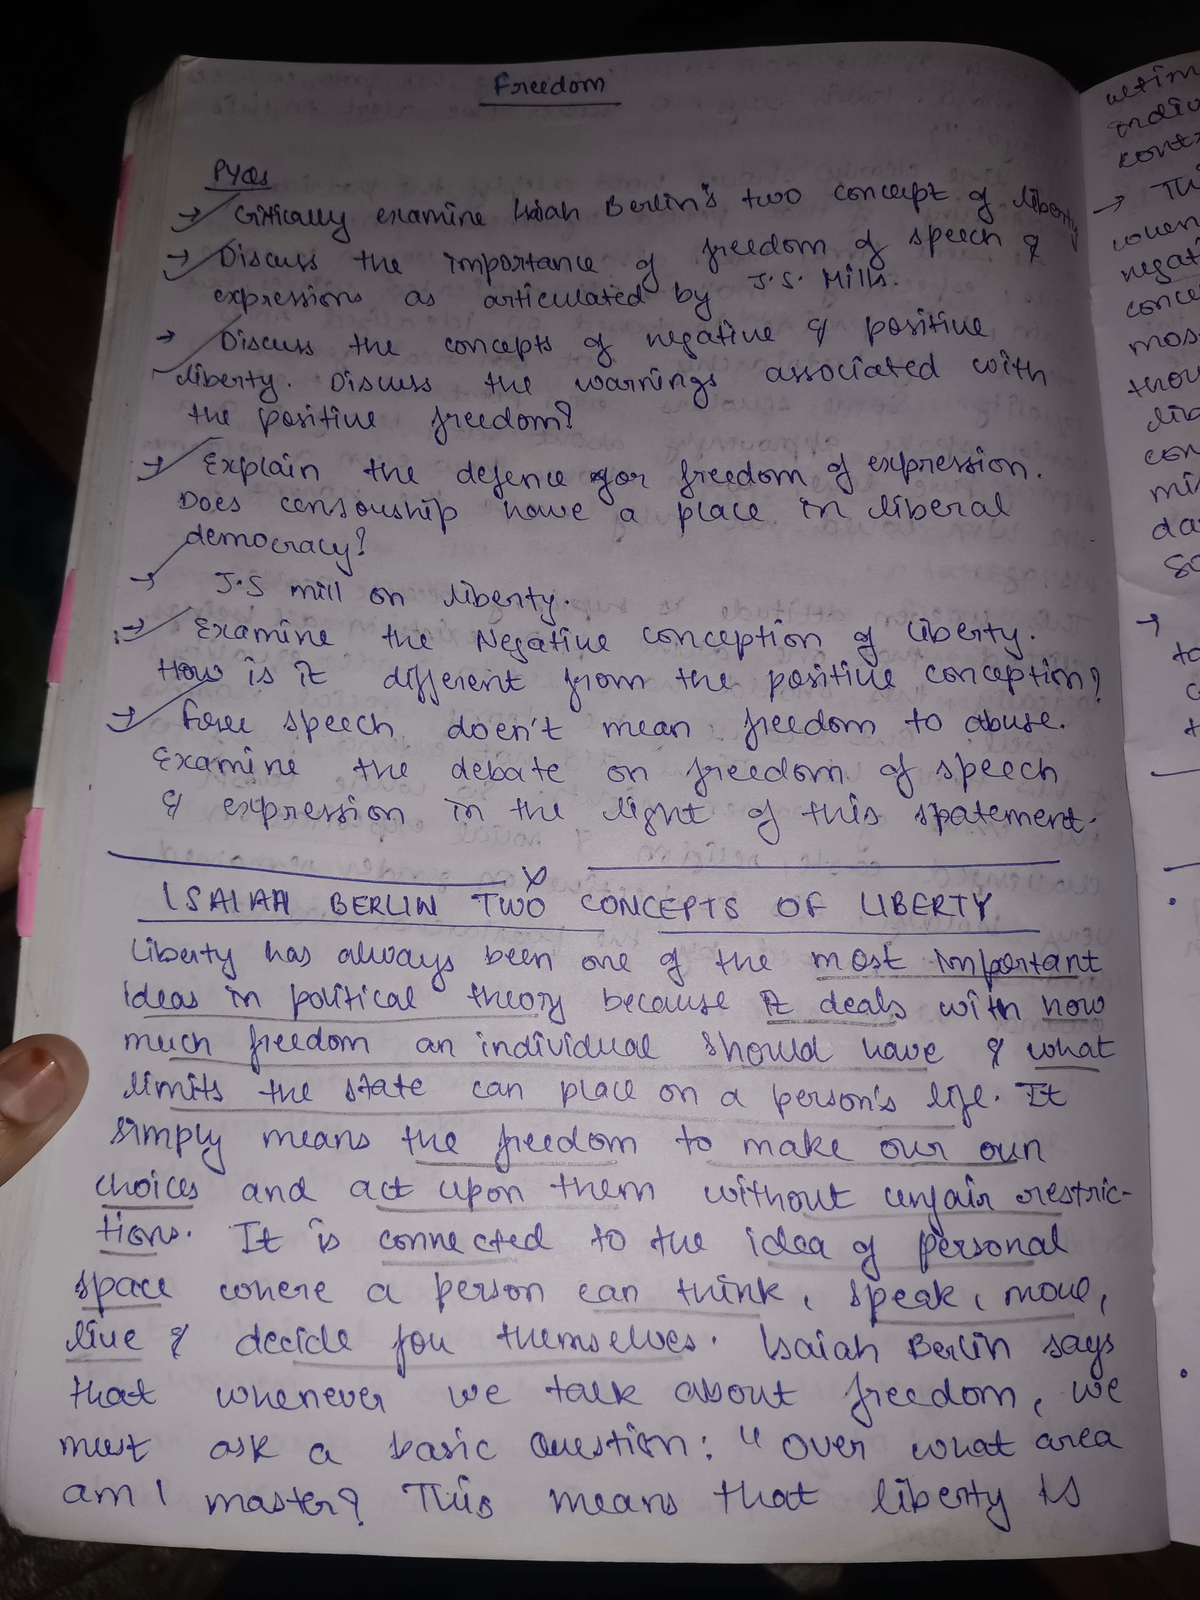 Freedom
PYQs
→ Critically examine Isiah Berlin's two concept of liberty
→ Discuss the importance of freedom of speech &
expressions as articulated by J.S. Mills.
→ Discuss the concepts of negative & positive
liberty. Discuss the warnings associated with
the positive freedom?
→ Explain the defence for freedom of expression.
Does censorship have a place in liberal
democracy?
→ J.S mill on liberty.
→ Examine the Negative conception of liberty.
How is it different from the positive conception?
→ Free speech doen't mean freedom to abuse.
Examine the debate on freedom of speech
& expression in the light of this spatement.
ISAIAH BERLIN TWO CONCEPTS OF LIBERTY
Liberty has always been one of the most important
ideas in political theory because it deals with how
much freedom an individual should have & what
limits the state can place on a person's life. It
simply means the freedom to make our own
choices and act upon them without unfair restric-
tions. It is connected to the idea of personal
space where a person can think, speak, move,
live & decide for themselves. Isaiah Berlin says
that whenever we talk about freedom, we
must ask a basic Question: "Over what area
am I master? This means that liberty is